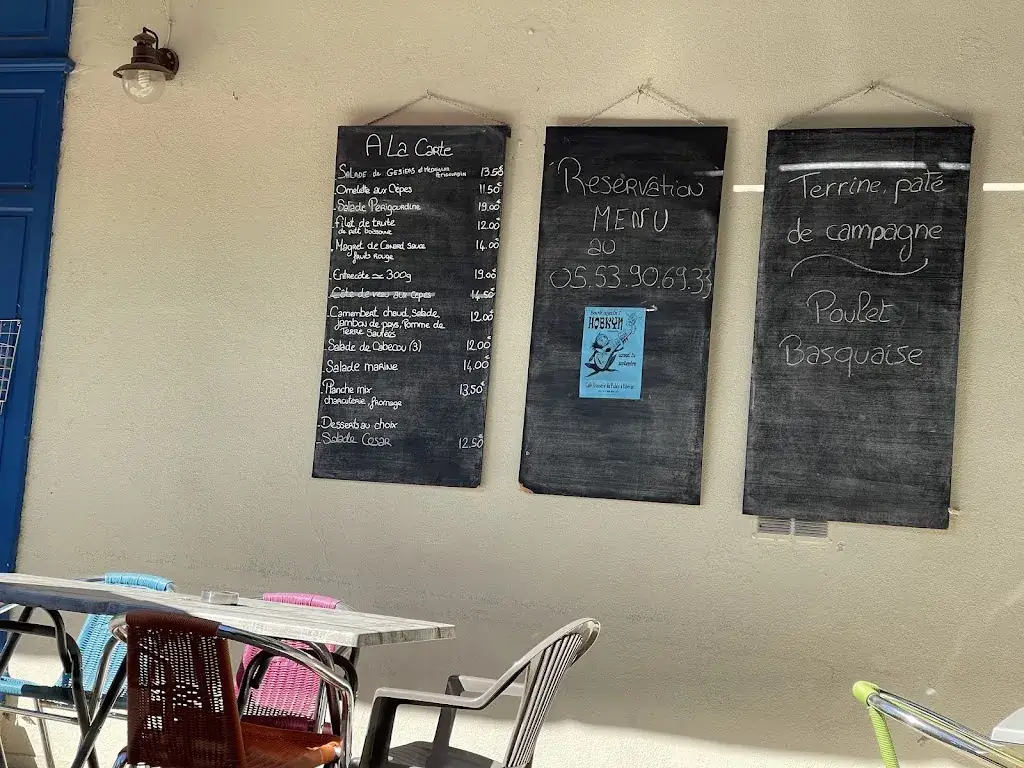 A La Carte
- Salade de Gesiers d'
Perigourdin 13.50€
- Omelette aux Cèpes 11.50€
- Salade Périgourdine 19.00€
- filet de truite 12.00€
- Magret de Canard sauce 14.00€
fruits rouge
- Entrecôte ≃ 300g 19.00€
- Côte de veau aux cèpes 14.50€
- Camembert chaud, Salade, 12.00€
jambon de pays, Pomme de
Terre Sautées
- Salade de Cabecou (3) 12.00€
- Salade marine 14.00€
- Planche mix 13.50€
charcuterie, fromage
- Desserts au choix
- Salade Cesar 12.50€
Reservation
MENU
au
05.53.90.69.33
HOBNYM
samedi
septembre
Terrine, paté
de campagne
Poulet
Basquaise